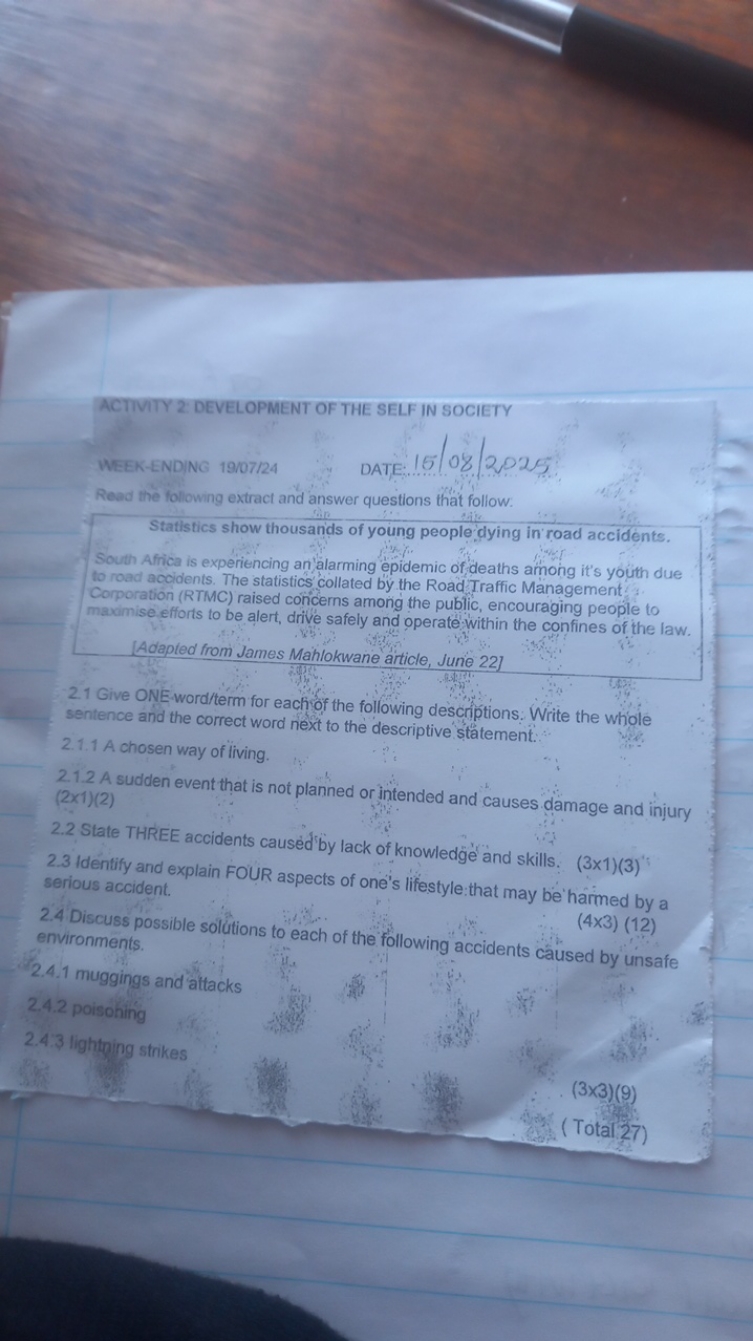 ACTIVITY 2: DEVELOPMENT OF THE SELF IN SOCIETY
WEEK-ENDING 19/07/24 DATE: 15/08/2025
Read the following extract and answer questions that follow:
Statistics show thousands of young people dying in road accidents.
South Africa is experiencing an alarming epidemic of deaths among it's youth due
to road accidents. The statistics collated by the Road Traffic Management
Corporation (RTMC) raised concerns among the public, encouraging people to
maximise efforts to be alert, drive safely and operate within the confines of the law.
[Adapted from James Mahlokwane article, June 22]
2.1 Give ONE word/term for each of the following descriptions. Write the whole
sentence and the correct word next to the descriptive statement.
2.1.1 A chosen way of living.
2.1.2 A sudden event that is not planned or intended and causes damage and injury
(2x1)(2)
2.2 State THREE accidents caused by lack of knowledge and skills. (3x1)(3)
2.3 Identify and explain FOUR aspects of one's lifestyle that may be harmed by a
serious accident. (4x3) (12)
2.4 Discuss possible solutions to each of the following accidents caused by unsafe
environments.
2.4.1 muggings and attacks
2.4.2 poisoning
2.4.3 lightning strikes
(3x3)(9)
( Total 27)